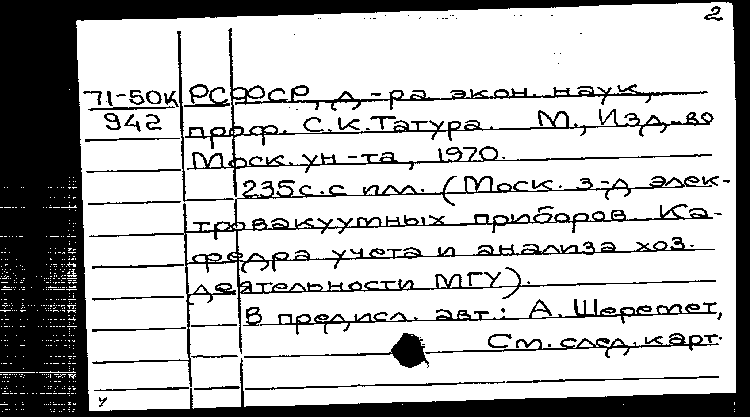 2
71-50к РСФСР, д,-ра экон. наук,
942 проф. С.К.Татура. М., Изд,-во
Моск. ун-та, 1970.
235с. с илл. (Моск. з-д элек-
тровакуумных приборов Ка-
федра учета и анализа хоз.
деятельности МГУ).
В предисл. авт.: А. Шеремет,
См. след. карт.